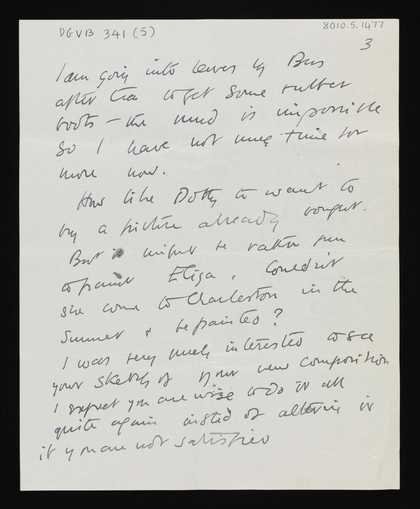 DGVB 341 (5)
8010.5.1477
3
I am going into Lewes by Bus
after tea to get some rubber
boots – the mud is impossible
So I have not much time for
more now.
How like Dotty to want to
buy a picture already bought.
But it might be rather fun
to paint Eliza. Couldn't
she come to Charleston in the
Summer & be painted?
I was very much interested to see
your sketch of your new composition
I expect you are wise to do it all
quite again insted of altering it
if you are not satisfied